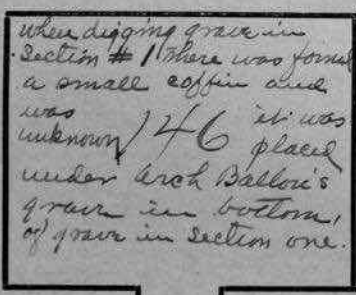 when digging grave in
Section # 1 there was found
a small coffin and
was 146 it was
unknown placed
under Arch Ballou's
grave in bottom,
of grave in Section one.